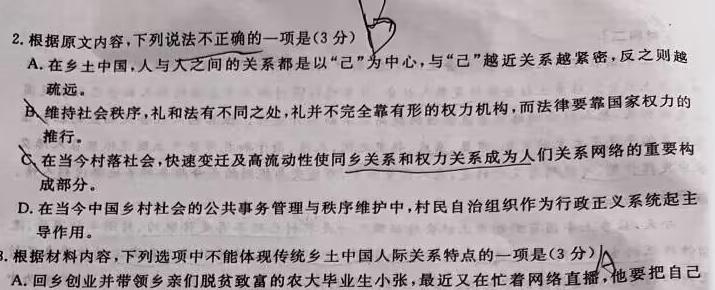 B
2. 根据原文内容,下列说法不正确的一项是(3 分)
A. 在乡土中国,人与人之间的关系都是以“己”为中心,与“己”越近关系越紧密,反之则越
疏远。
B. 维持社会秩序,礼和法有不同之处,礼并不完全靠有形的权力机构,而法律要靠国家权力的
推行。
C. 在当今村落社会,快速变迁及高流动性使同乡关系和权力关系成为人们关系网络的重要构
成部分。
D. 在当今中国乡村社会的公共事务管理与秩序维护中,村民自治组织作为行政正义系统起主
导作用。
3. 根据材料内容,下列选项中不能体现传统乡土中国人际关系特点的一项是(3 分) A
A. 回乡创业并带领乡亲们脱贫致富的农大毕业生小张,最近又在忙着网络直播,他要把自己